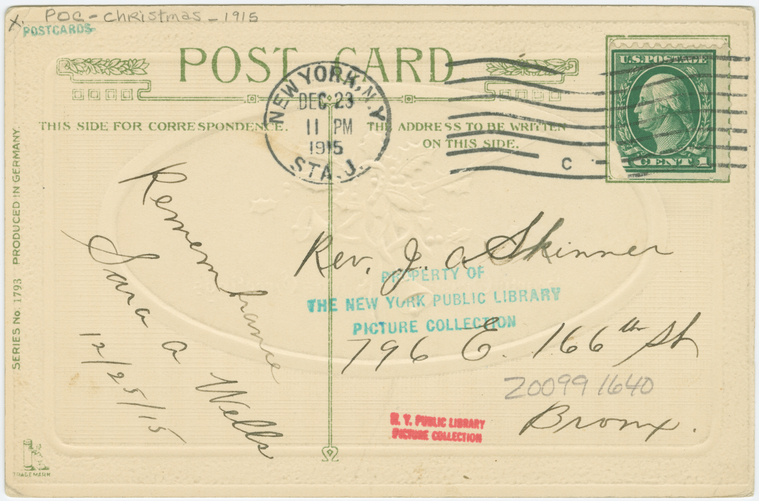 X. POC - Christmas - 1915
POSTCARDS
POST CARD
NEW YORK, N.Y.
DEC 23
11 PM
1915
STA. J.
C
U.S. POSTAGE
1 CENT 1
THIS SIDE FOR CORRESPONDENCE.
THE ADDRESS TO BE WRITTEN
ON THIS SIDE.
Remembrance
Sara A Wells
12/25/15
Rev. J. A Skinner
796 E. 166th St
Bronx.
PROPERTY OF
THE NEW YORK PUBLIC LIBRARY
PICTURE COLLECTION
Z0099 1640
N. Y. PUBLIC LIBRARY
PICTURE COLLECTION
SERIES No. 1793 PRODUCED IN GERMANY.
TRADE MARK